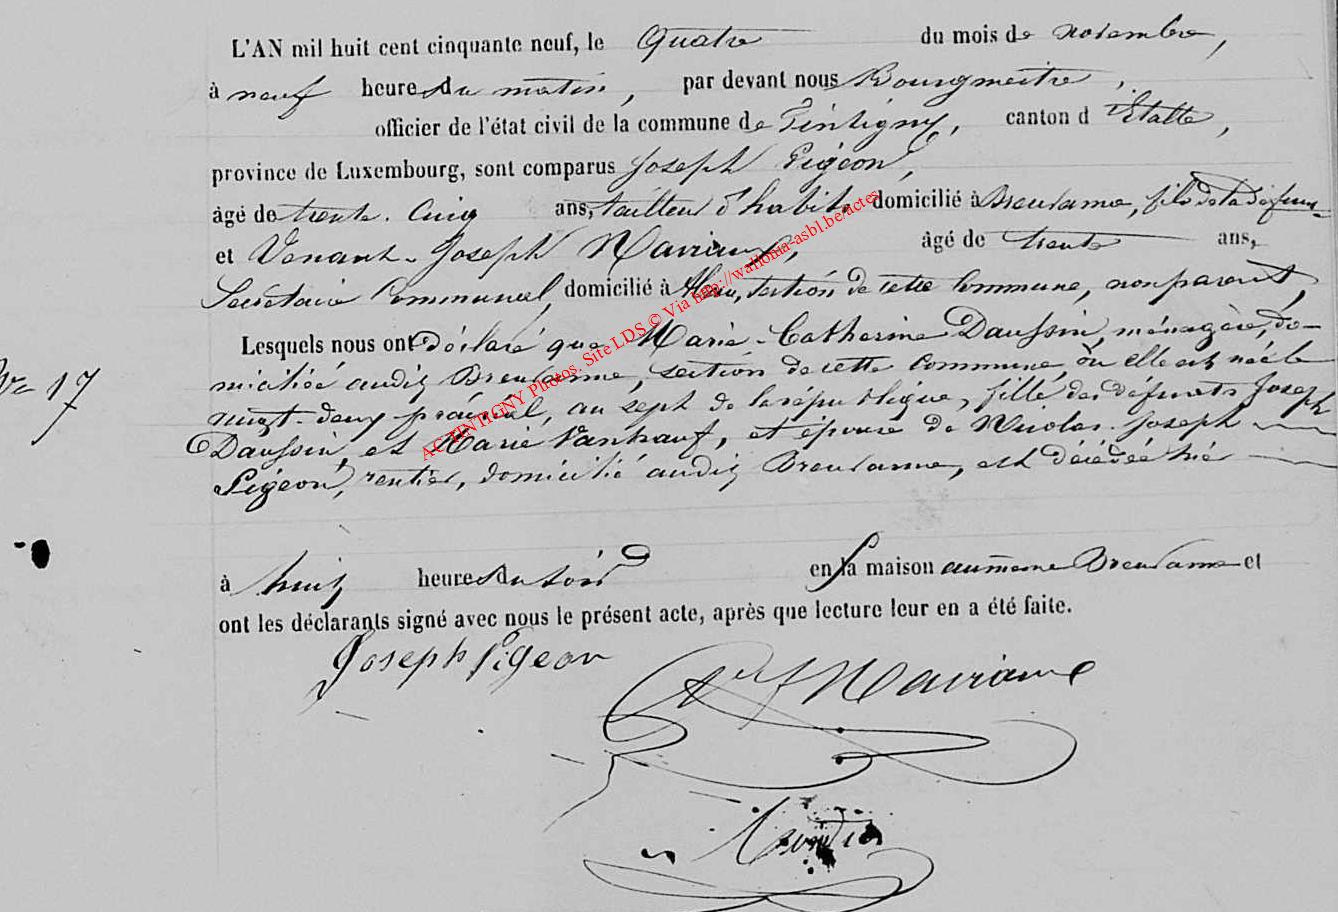 L'AN mil huit cent cinquante neuf, le Quatre du mois de novembre,
à neuf heures du matin, par devant nous Bourgmestre,
officier de l'état civil de la commune de Tintigny, canton d'Etalle,
province de Luxembourg, sont comparus Joseph Pigeon,
âgé de trente-cinq ans, tailleur d'habits domicilié à Breuvanne, fils de la défunte
et Venant-Joseph âgé de trente ans,
Secrétaire Communal, domicilié à section de cette Commune, non parent,
Lesquels nous ont déclaré que Marie-Catherine Daussin, ménagère, do-
miciliée audit Breuvanne, section de cette commune, où elle est née le
vingt-deux prairial, an sept de la république, fille des défunts Joseph
Daussin, et Marie et épouse de Nicolas-Joseph
Pigeon, rentier, domicilié audit Breuvanne, est décédée hier
N° 17
à huit heures du soir en sa maison au même Breuvanne et
ont les déclarants signé avec nous le présent acte, après que lecture leur en a été faite.
Joseph Pigeon
ACTINTIGNY Photos. Site LDS © Via http://wallonia-asbl.be/actes